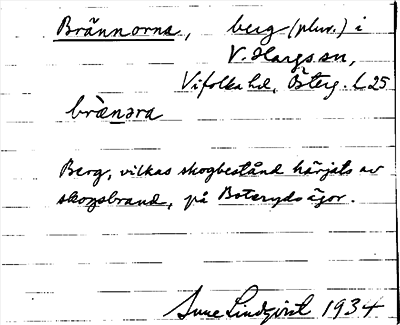 Brännorna, berg (plur.) i
V. Hargs sn,
Vifolka hd, Österg. L 25
brὲnəra
Berg, vilkas skogbestånd härjats av
skogsbrand, på Boterydsägor.
Sune Lindqvist 1934